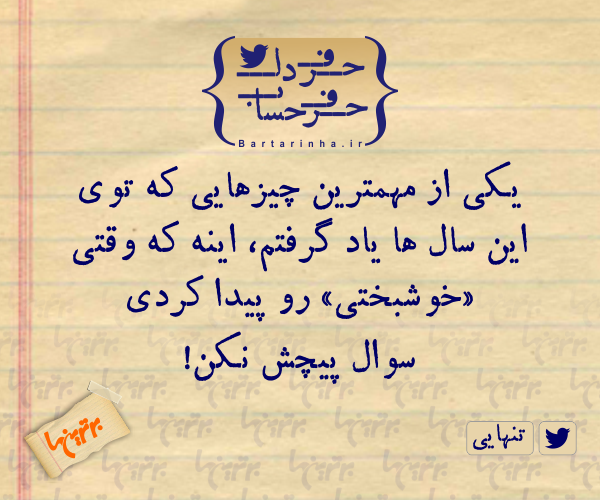 حرف دل
حرف حساب
Bartarinha.ir
یکی از مهمترین چیزهایی که توی
این سال ها یاد گرفتم، اینه که وقتی
«خوشبختی» رو پیدا کردی
سوال پیچش نکن!
تنهایی
برترینها